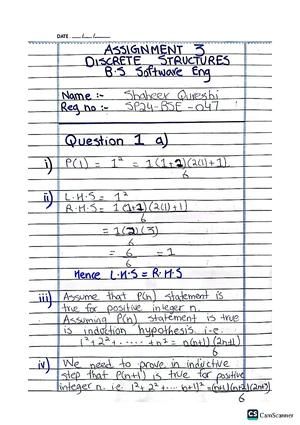 DATE __/__/__
ASSIGNMENT 3
DISCRETE STRUCTURES
B.S Software Eng
Name :- Shaheer Qureshi
Reg no :- SP24-BSE-047
Question 1 a)
i) P(1) = 1² = 1(1+1)(2(1)+1)
6
ii) L.H.S = 1²
R.H.S = 1(1+1)(2(1)+1)
6
= 1(2)(3)
6
= 6 = 1
6
Hence L.H.S = R.H.S
iii) Assume that P(n) statement is
true for positive integer n.
Assuming P(n) statement is true
is induction hypothesis. i.e
1²+2²+.....+n² = n(n+1)(2n+1)
6
iv) We need to prove in inductive
step that P(n+1) is true for positive
integer n. i.e 1²+2²+...n+1)² = (n+1)(n+2)(2n+3)
6
CS CamScanner